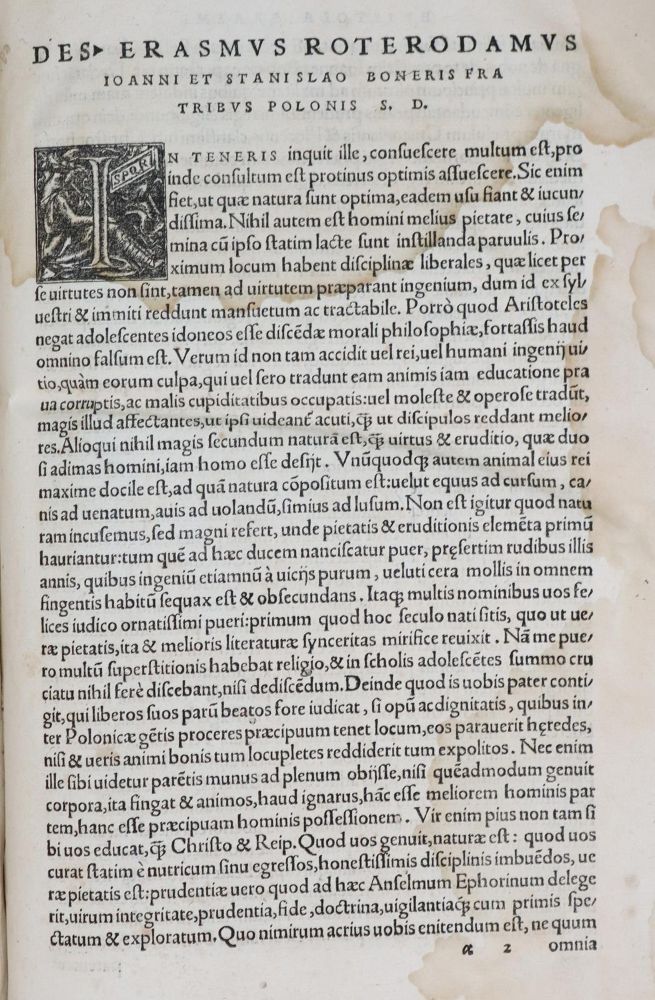 DES▸ ERASMVS ROTERODAMVS
IOANNI ET STANISLAO BONERIS FRA
TRIBVS POLONIS S. D.
IN TENERIS inquit ille, consuescere multum est, pro
inde consultum est protinus optimis assuescere. Sic enim
fiet, ut quæ natura sunt optima, eadem usu fiant & iucun/
dissima. Nihil autem est homini melius pietate, cuius se/
mina cũ ipso statim lacte sunt instillanda paruulis. Pro/
ximum locum habent disciplinæ liberales, quæ licet per
se uirtutes non sint, tamen ad uirtutem præparant ingenium, dum id ex syl/
uestri & immiti reddunt mansuetum ac tractabile. Porrò quod Aristoteles
negat adolescentes idoneos esse discẽdæ morali philosophiæ, fortassis haud
omnino falsum est. Verum id non tam accidit uel rei, uel humani ingenij ui/
tio, quàm eorum culpa, qui uel sero tradunt eam animis iam educatione pra
ua corruptis, ac malis cupiditatibus occupatis: uel moleste & operose tradũt,
magis illud affectantes, ut ipsi uideant̃ acuti, q̃ȝ ut discipulos reddant melio/
res. Alioqui nihil magis secundum naturã est, q̃ȝ uirtus & eruditio, quæ duo
si adimas homini, iam homo esse desijt. Vnũquodqȝ autem animal eius rei
maxime docile est, ad quã natura cõpositum est: uelut equus ad cursum, ca/
nis ad uenatum, auis ad uolandũ, simius ad lusum. Non est igitur quod natu
ram incusemus, sed magni refert, unde pietatis & eruditionis elemẽta primũ
hauriantur: tum quẽ ad hæc ducem nanciscatur puer, pręsertim rudibus illis
annis, quibus ingeniũ etiamnũ à uicijs purum, ueluti cera mollis in omnem
fingentis habitũ sequax est & obsecundans. Itaqȝ multis nominibus uos fe/
lices iudico ornatissimi pueri: primum quod hoc seculo nati sitis, quo ut ue/
ræ pietatis, ita & melioris literaturæ synceritas mirifice reuixit. Nã me pue/
ro multũ superstitionis habebat religio, & in scholis adolescẽtes summo cru
ciatu nihil ferè discebant, nisi dediscẽdum. Deinde quod is uobis pater conti/
git, qui liberos suos parũ beatos fore iudicat, si opũ ac dignitatis, quibus in/
ter Polonicæ gẽtis proceres præcipuum tenet locum, eos parauerit hęredes,
nisi & ueris animi bonis tum locupletes reddiderit tum expolitos. Nec enim
ille sibi uidetur parẽtis munus ad plenum obijsse, nisi quẽadmodum genuit
corpora, ita fingat & animos, haud ignarus, hãc esse meliorem hominis par
tem, hanc esse præcipuam hominis possessionem. Vir enim pius non tam si
bi uos educat, q̃ȝ Christo & Reip. Quod uos genuit, naturæ est: quod uos
curat statim è nutricum sinu egressos, honestissimis disciplinis imbuẽdos, ue
ræ pietatis est: prudentiæ uero quod ad hæc Anselmum Ephorinum delege
rit, uirum integritate, prudentia, fide, doctrina, uigilantiaqȝ cum primis spe/
ctatum & exploratum. Quo nimirum acrius uobis enitendum est, ne quum
α 2 omnia